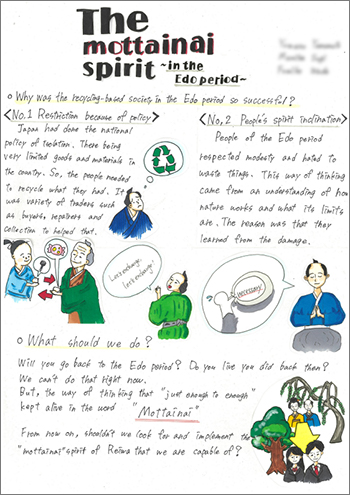 The
mottainai
spirit ~in the
Edo period~
○ Why was the recycling-based society in the Edo period so successful?
<No.1 Restriction because of policy>
Japan had done the national
policy of isolation. There being
very limited goods and materials in
the country. So, the people needed
to recycle what they had. It
was variety of traders such
as buyers, repairers and
collection to helped that.
Let's exchange,
let's exchange!
<No.2 People's spirit inclination>
People of the Edo period
respected modesty and hated to
waste things. This way of thinking
came from an understanding of how
nature works and what its limits
are. The reason was that they
learned from the damage.
necessary
○ What should we do?
Will you go back to the Edo period? Do you live you did back then?
We can't do that right now.
But, the way of thinking that "just enough to enough"
kept alive in the word "Mottainai"
From now on, shouldn't we look for and implement the
"mottainai" spirit of Reiwa that we are capable of?